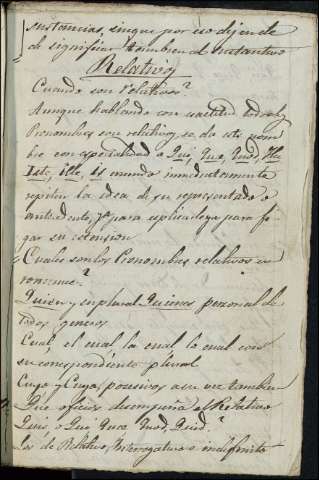 sustancias, sinque por eso dejen de
de significar tambien al sustantivo
Relativos
Cuando son relativos?
Aunque hablando con exactitud todos los
Pronombres son relativos, se da este nom
bre con especialidad a Qui, Quæ, Quod, Hic
Iste, ille, is cuando inmediatamente
repiten la idea de su representado o
antecedente, ya para explicarla, ya para fi
jar su estension
Cuales son los Pronombres relativos en
romance?
Quien y en plural Quienes personal de
todos generos
Cual, el cual la cual lo cual con
su correspondiente plural
Cuyo y Cuya, posesivos a su vez tambien
Que oficios desempeña el Relativo
Quis, o Qui, Quæ Quod, Quid?
los de Relativo, Interrogativo o indefinito